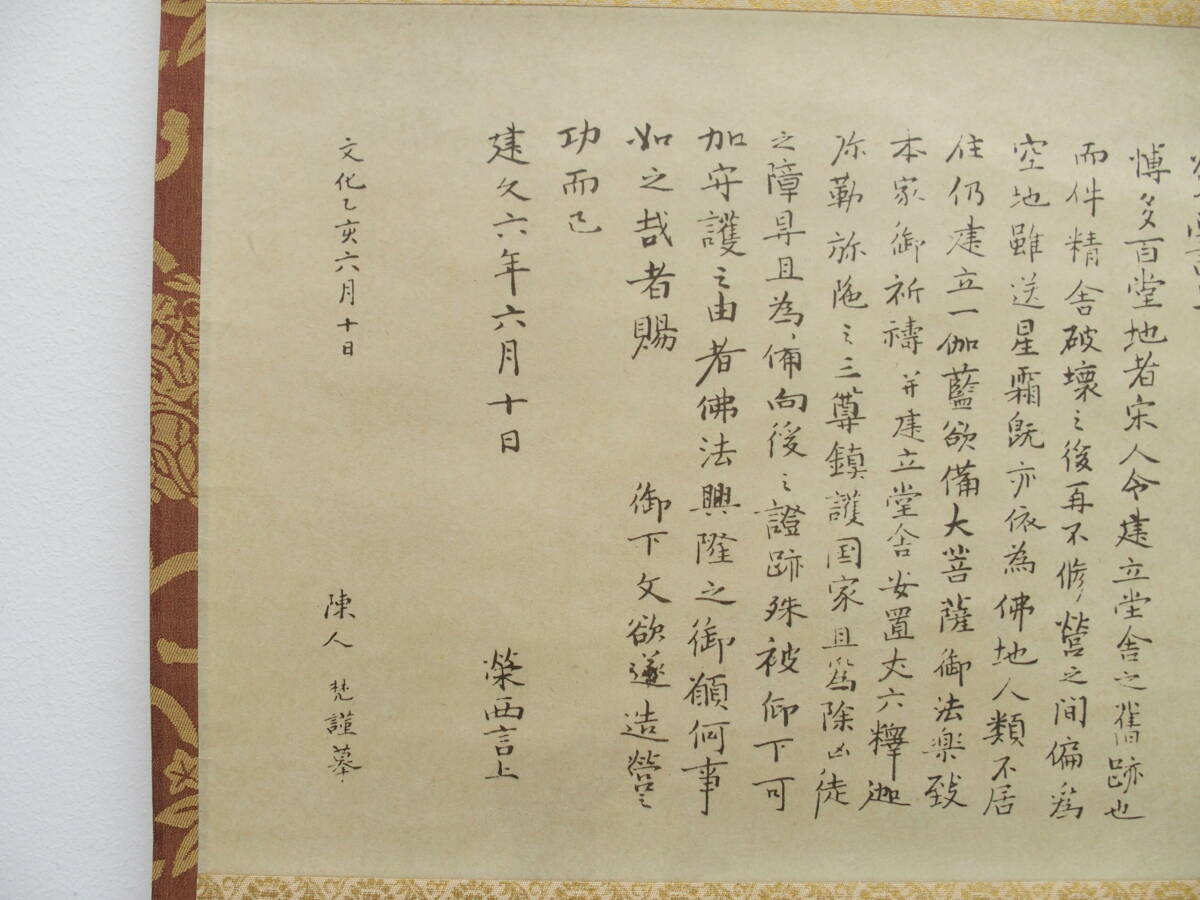 博多百堂地者宋人令建立堂舎之舊跡也
而件精舎破壊之後再不修營之間偏為
空地雖送星霜既亦依為佛地人類不居
住仍建立一伽藍欲備大菩薩御法楽致
本家御祈禱并建立堂舎安置丈六釋迦
弥勒弥陁之三尊鎮護国家且為除凶徒
之障㝵且為備向後之證跡殊被仰下可
加守護之由者佛法興隆之御願何事
如之哉者賜 御下文欲遂造營之
功而已
建久六年六月十日 榮西言上
文化乙亥六月十日 陳人 梵謹摹